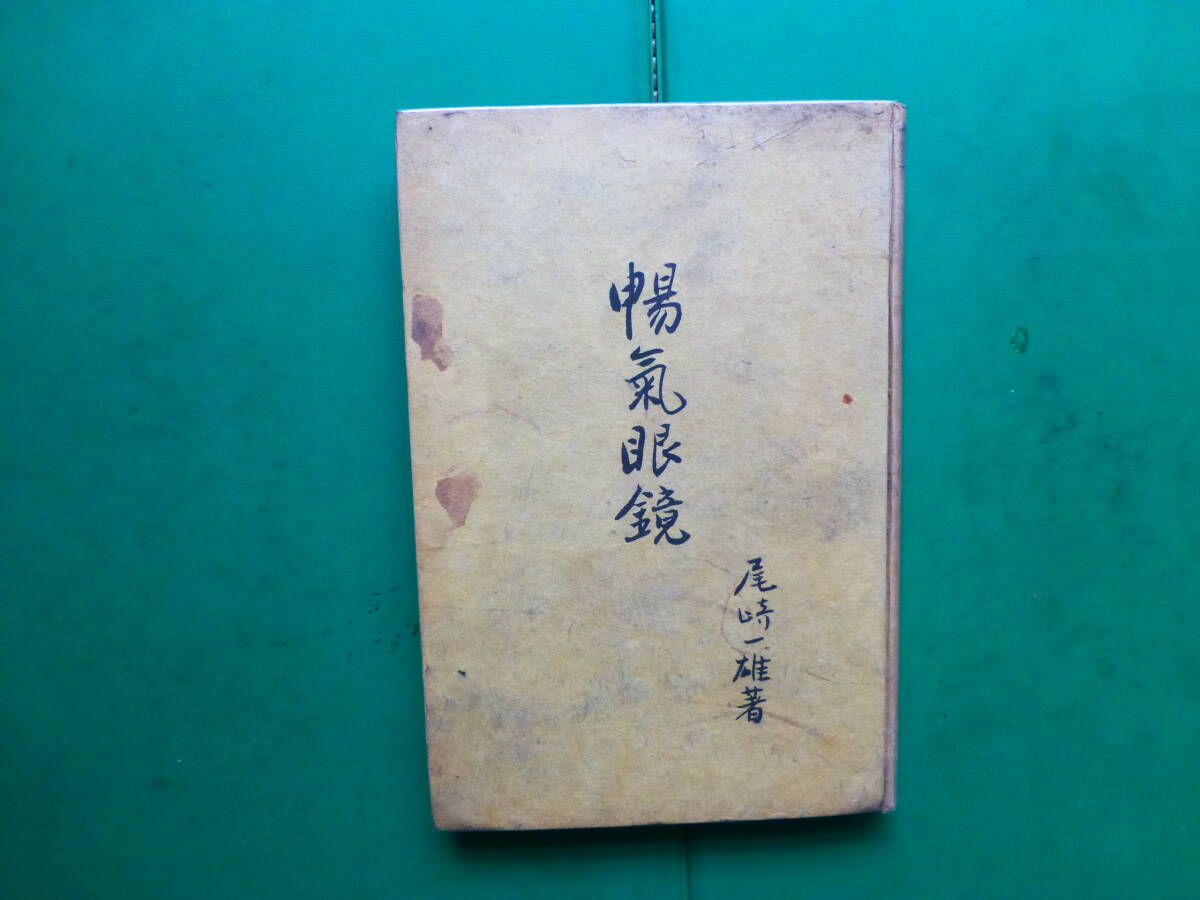 暢氣眼鏡
尾崎一雄著